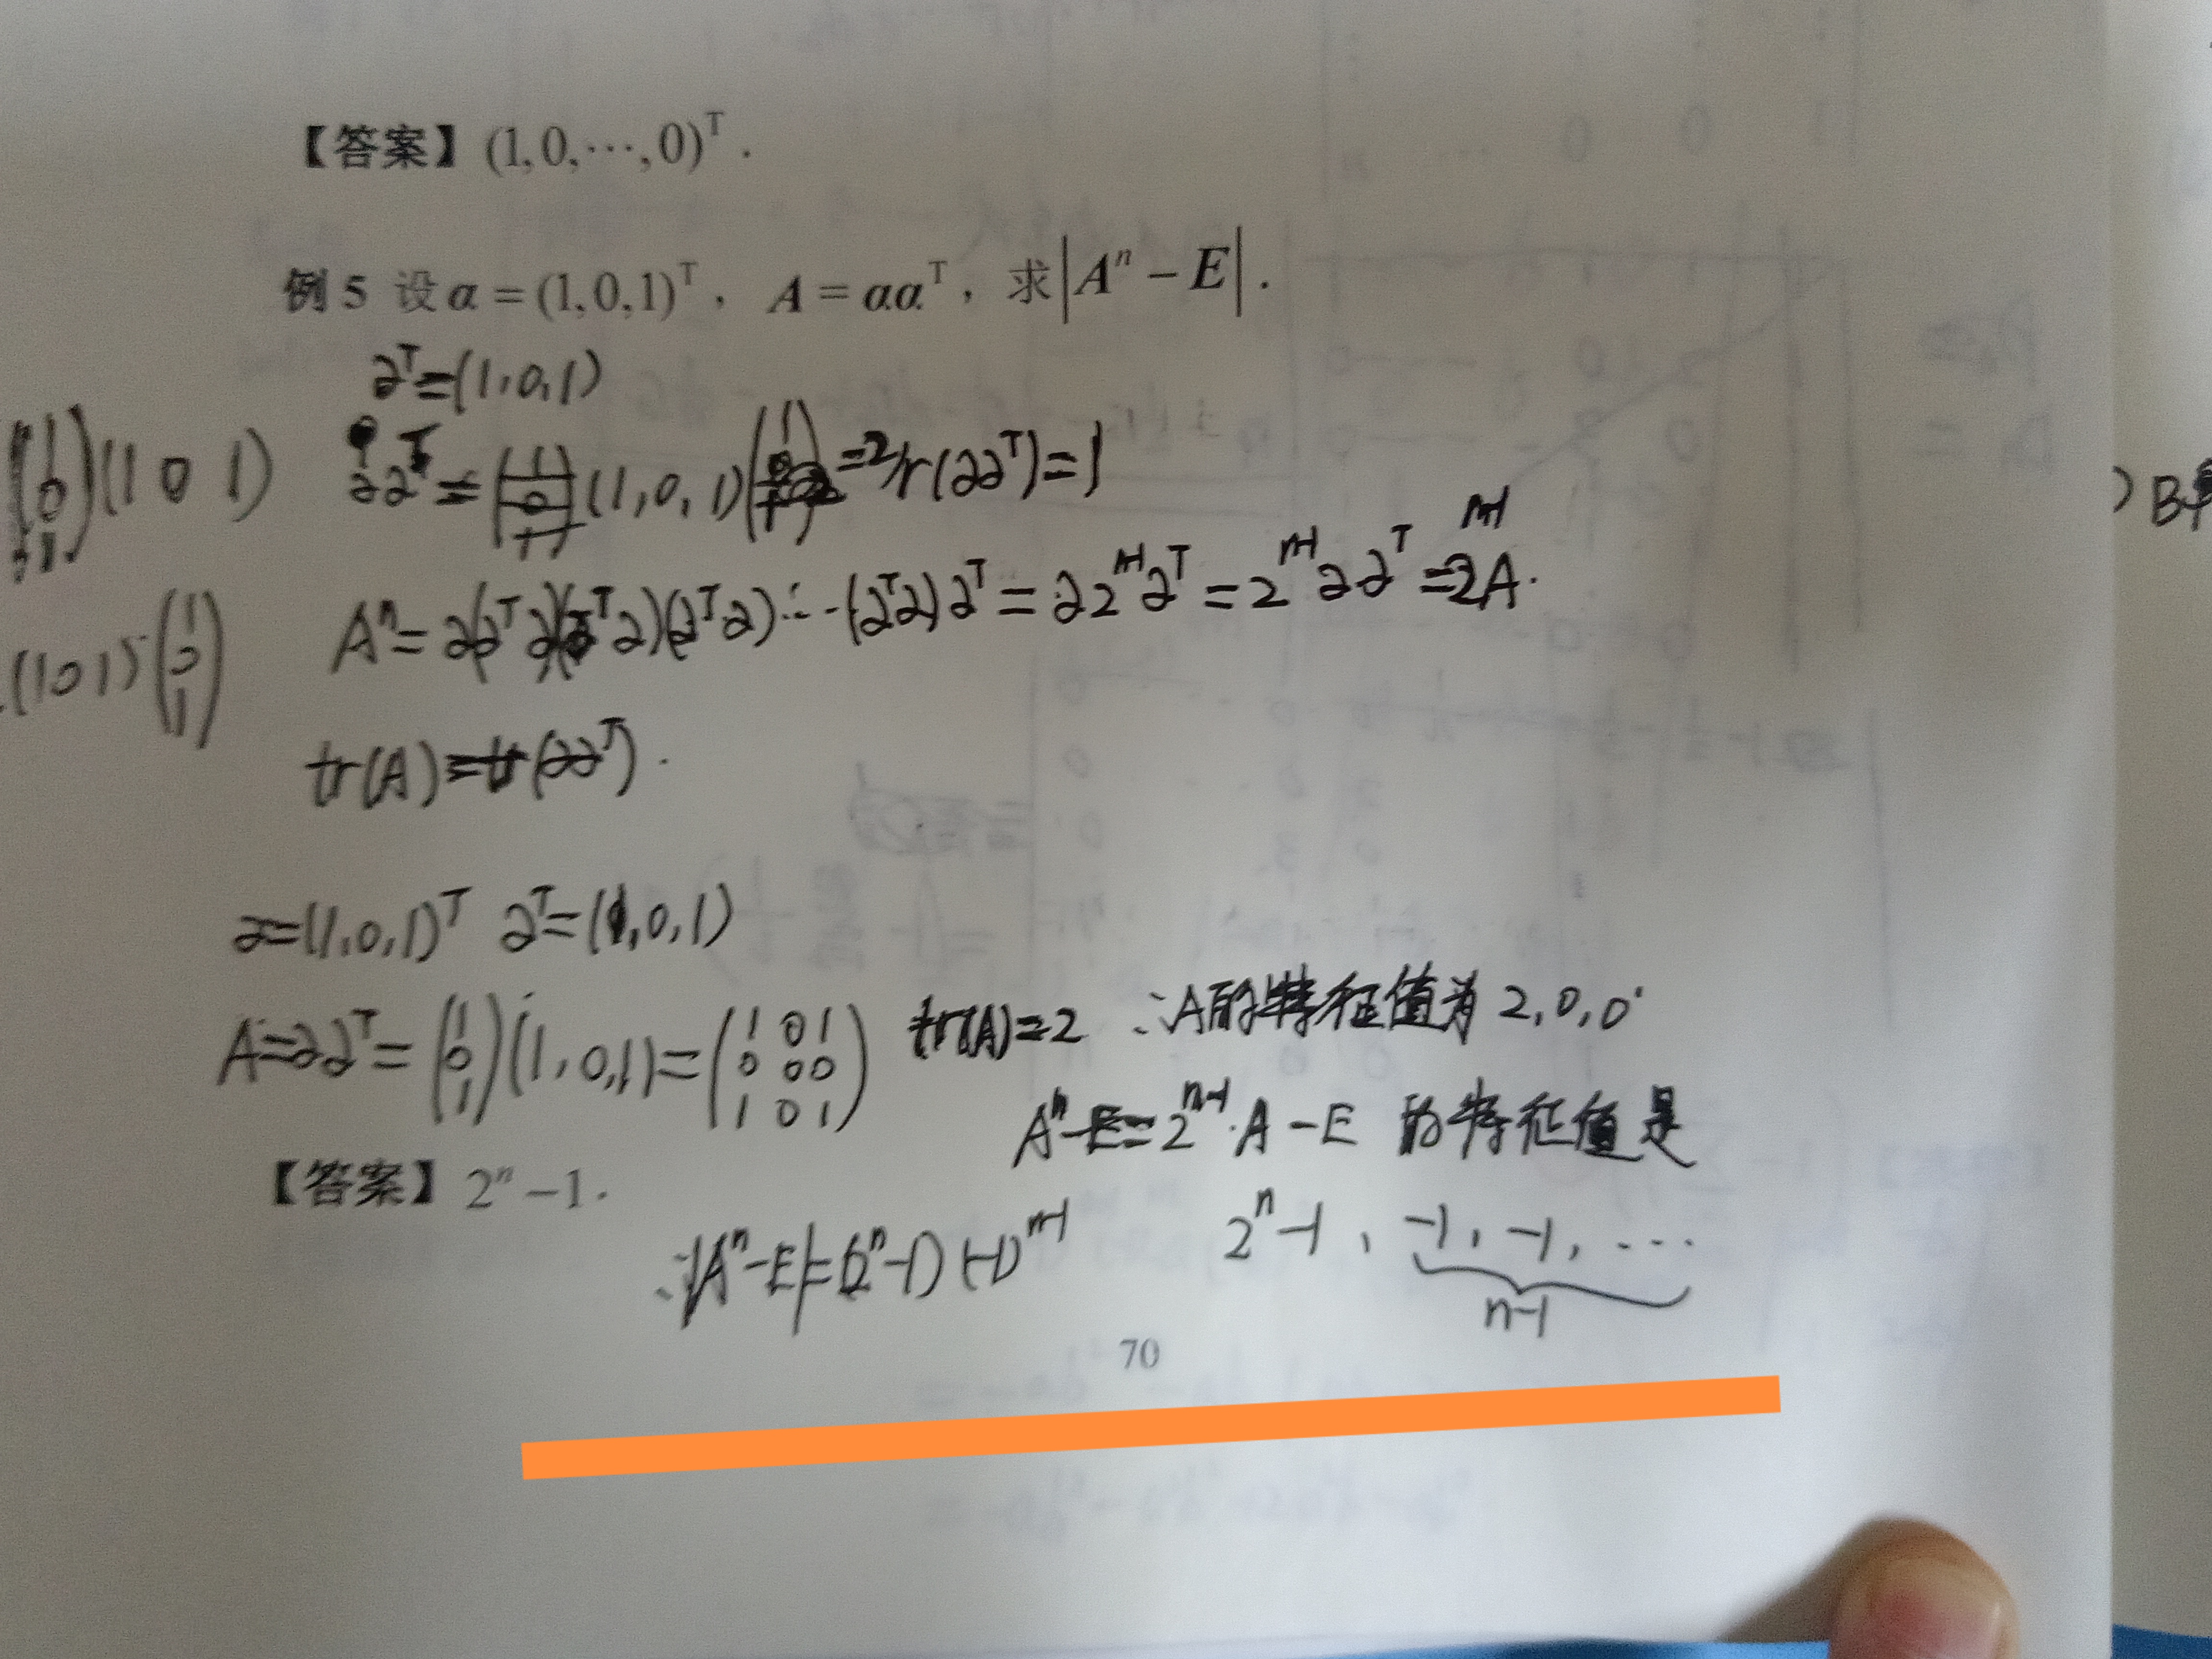 【答案】(1,0,⋯,0)ᵀ.
例 5 设 α = (1,0,1)ᵀ, A = ααᵀ, 求|Aⁿ − E|.
αᵀ=(1,0,1)
(1 0 1)
ααᵀ = (1,0,1) =2 r(ααᵀ)=1
Aⁿ= α(αᵀα)(αᵀα)(αᵀα)⋯(αᵀα)αᵀ = α2ⁿ⁻¹αᵀ = 2ⁿ⁻¹ααᵀ = 2ⁿ⁻¹A.
(1 0 1)(1 0 1)
tr(A)=tr(ααᵀ).
α=(1,0,1)ᵀ αᵀ=(1,0,1)
A=ααᵀ=(1 0 1)(1,0,1)=(1 0 1 0 0 0 1 0 1) tr(A)=2 ∴A的特征值为 2,0,0.
Aⁿ−E=2ⁿ⁻¹·A−E 的特征值是
【答案】2ⁿ −1.
∴|Aⁿ−E|=(2ⁿ−1)(−1)ⁿ⁻¹ 2ⁿ−1, −1, −1, ⋯
n−1
70